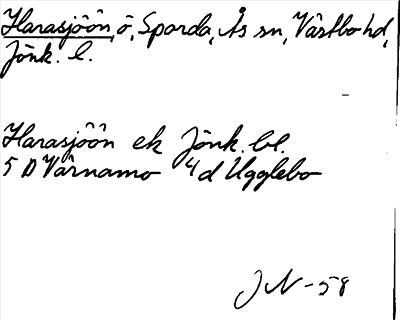 Harasjöön, ö, Sporda, Ås sn, Västbo hd,
Jönk. l.
Harasjöön ek Jönk. bl.
5 D Värnamo 4 d Ugglebo
JN-58